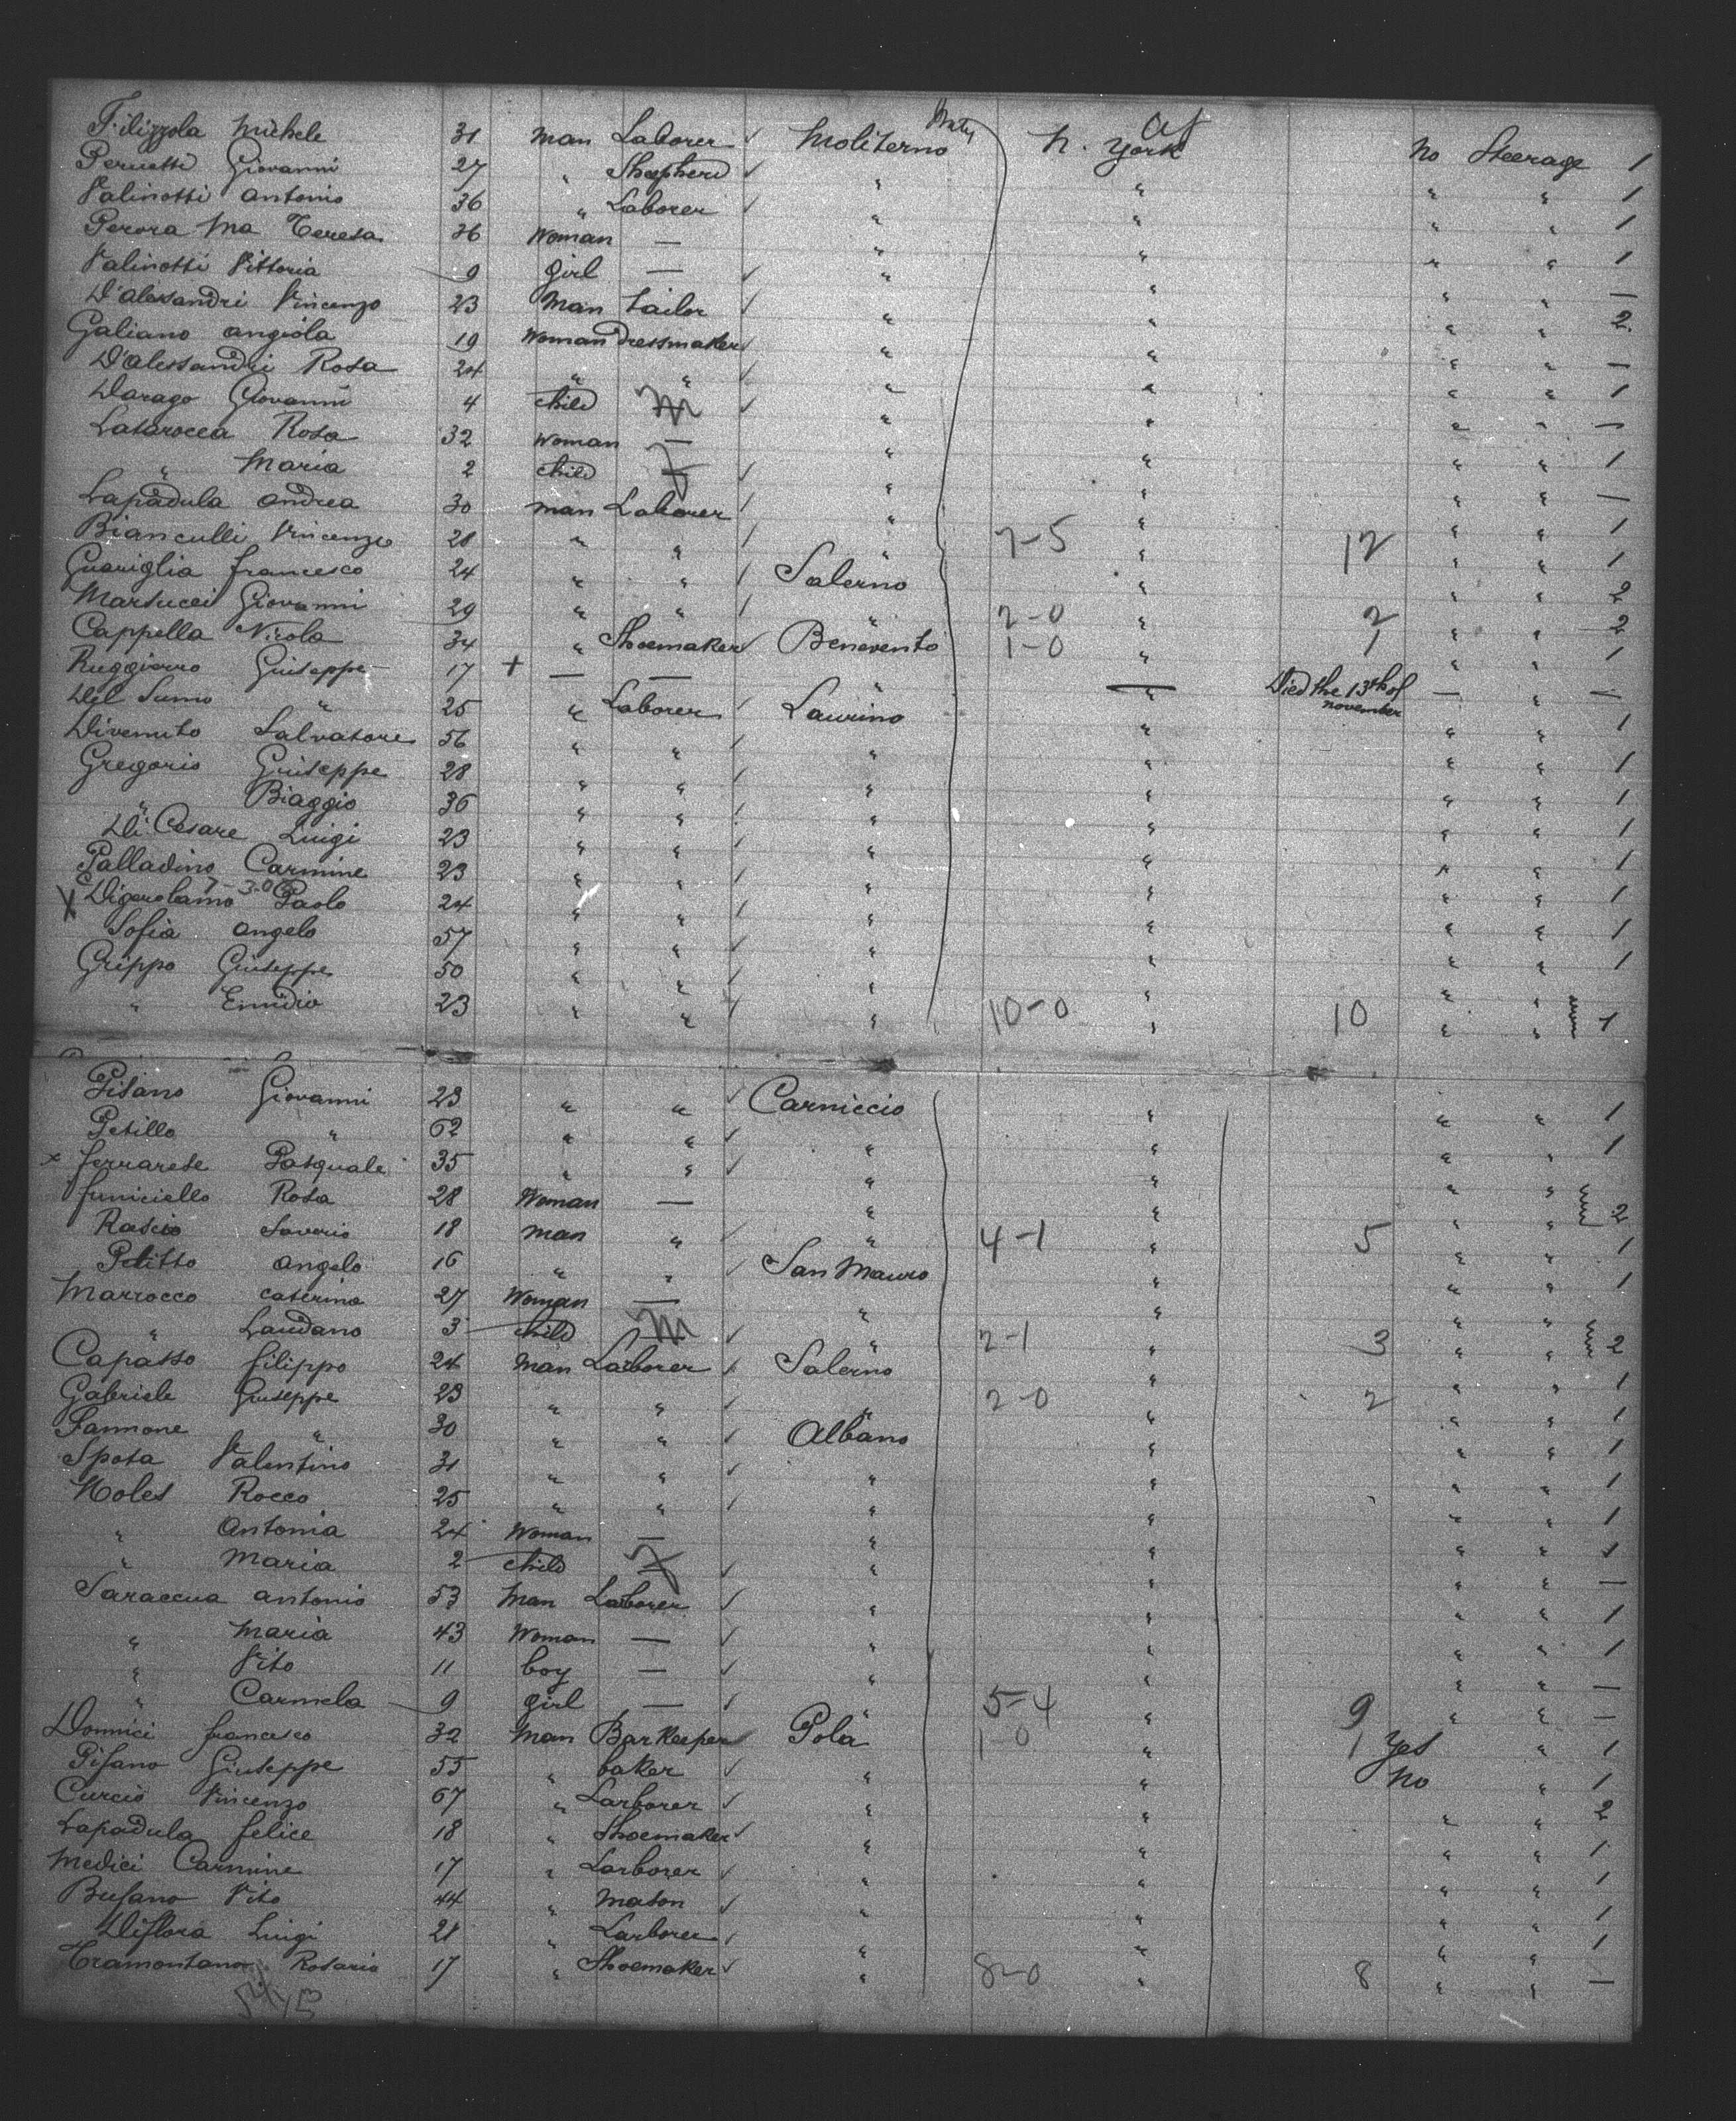 Filizzola Michele 31 man Laborer ✓ Moliterno Italy N. York at No Steerage 1
Peruetti Giovanni 27 " Shepherd ✓ " " " " 1
Valinotti Antonio 36 " Laborer ✓ " " " " 1
Perora Ma Teresa 36 Woman — " " " " 1
Valinotti Vittoria 9 girl — ✓ " " " " —
D'alessandri Vincenzo 23 Man tailor ✓ " " " " 2
Galiano angiola 19 Woman Dressmaker ✓ " " " " —
D'alessandri Rosa 24 " " ✓ " " " " 1
Darago Giovanni 4 child M ✓ " " " " —
Latarocca Rosa 32 Woman — " " " " 1
" Maria 2 child F ✓ " " " " —
Lapadula andrea 30 man Laborer ✓ " " " " 1
Bianculli Vincenzo 28 " " ✓ " 7-5 " 12 " " 1
Guariglia francesco 24 " " ✓ Salerno " " " 2
Martucci Giovanni 29 " " ✓ " 2-0 " 2 " " 2
Cappella Nicola 34 " Shoemaker ✓ Benevento 1-0 " 1 " " 1
Ruggierro Giuseppe 17 + — — " — Died the 13th of november — —
Del Sumo " 25 " Laborer ✓ Laurino " " " 1
Divenuto Salvatore 56 " " ✓ " " " " 1
Gregorio Giuseppe 28 " " ✓ " " " " 1
" Biaggio 36 " " ✓ " " " " 1
Di Cesare Luigi 23 " " ✓ " " " " 1
Palladino Carmine 23 " " ✓ " " " " 1
X Digerolamo 7-3-0 Paolo 24 " " ✓ " " " " 1
Sofia angelo 57 " " ✓ " " " " 1
Grippo Giuseppe 50 " " ✓ " " " "
" Emidio 23 " " ✓ " 10-0 " 10 " " 1
Pisano Giovanni 23 " " ✓ Carniccio " " " 1
Petillo " 62 " " ✓ " " " " 1
x ferrarese Pasquale 35 " " ✓ " " " "
funiciello Rosa 28 Woman — " " " " 2
Rascio Saverio 18 man " ✓ " 4-1 " 5 " " 1
Petitto angelo 16 " " ✓ San Mauro " " " 1
Marrocco caterina 27 Woman — " " " "
" Laudano 3 child M ✓ " 2-1 " 3 " " 2
Capasso filippo 24 man Laborer ✓ Salerno " " " 1
Gabriele Giuseppe 23 " " ✓ " 2-0 " 2 " " 1
Iannone " 30 " " ✓ Albano " " " 1
Spota Valentino 31 " " ✓ " " " " 1
Moles Rocco 25 " " ✓ " " " " 1
" Antonia 24 Woman — " " " " 1
" Maria 2 child F ✓ " " " " —
Saraccua antonio 53 Man Laborer ✓ " " " " 1
" Maria 43 Woman — ✓ " " " " 1
" Vito 11 boy — ✓ " " " " —
" Carmela 9 girl — ✓ " 5-4 " 9 " " —
Donnici francesco 32 Man Barkeeper ✓ Pola 1 0 " 1 Yes " 1
Pisano Giuseppe 55 " baker ✓ " " No " 1
Curcio Vincenzo 67 " Larborer ✓ " " " " 2
Lapadula felice 18 " Shoemaker ✓ " " " " 1
Medici Carmine 17 " Larborer ✓ " " " " 1
Bufano Vito 44 " Mason ✓ " " " " 1
Diflora Luigi 21 " Larborer ✓ " " " " 1
Tramontano Rosario 17 " Shoemaker ✓ " 8-0 " 8 " " —